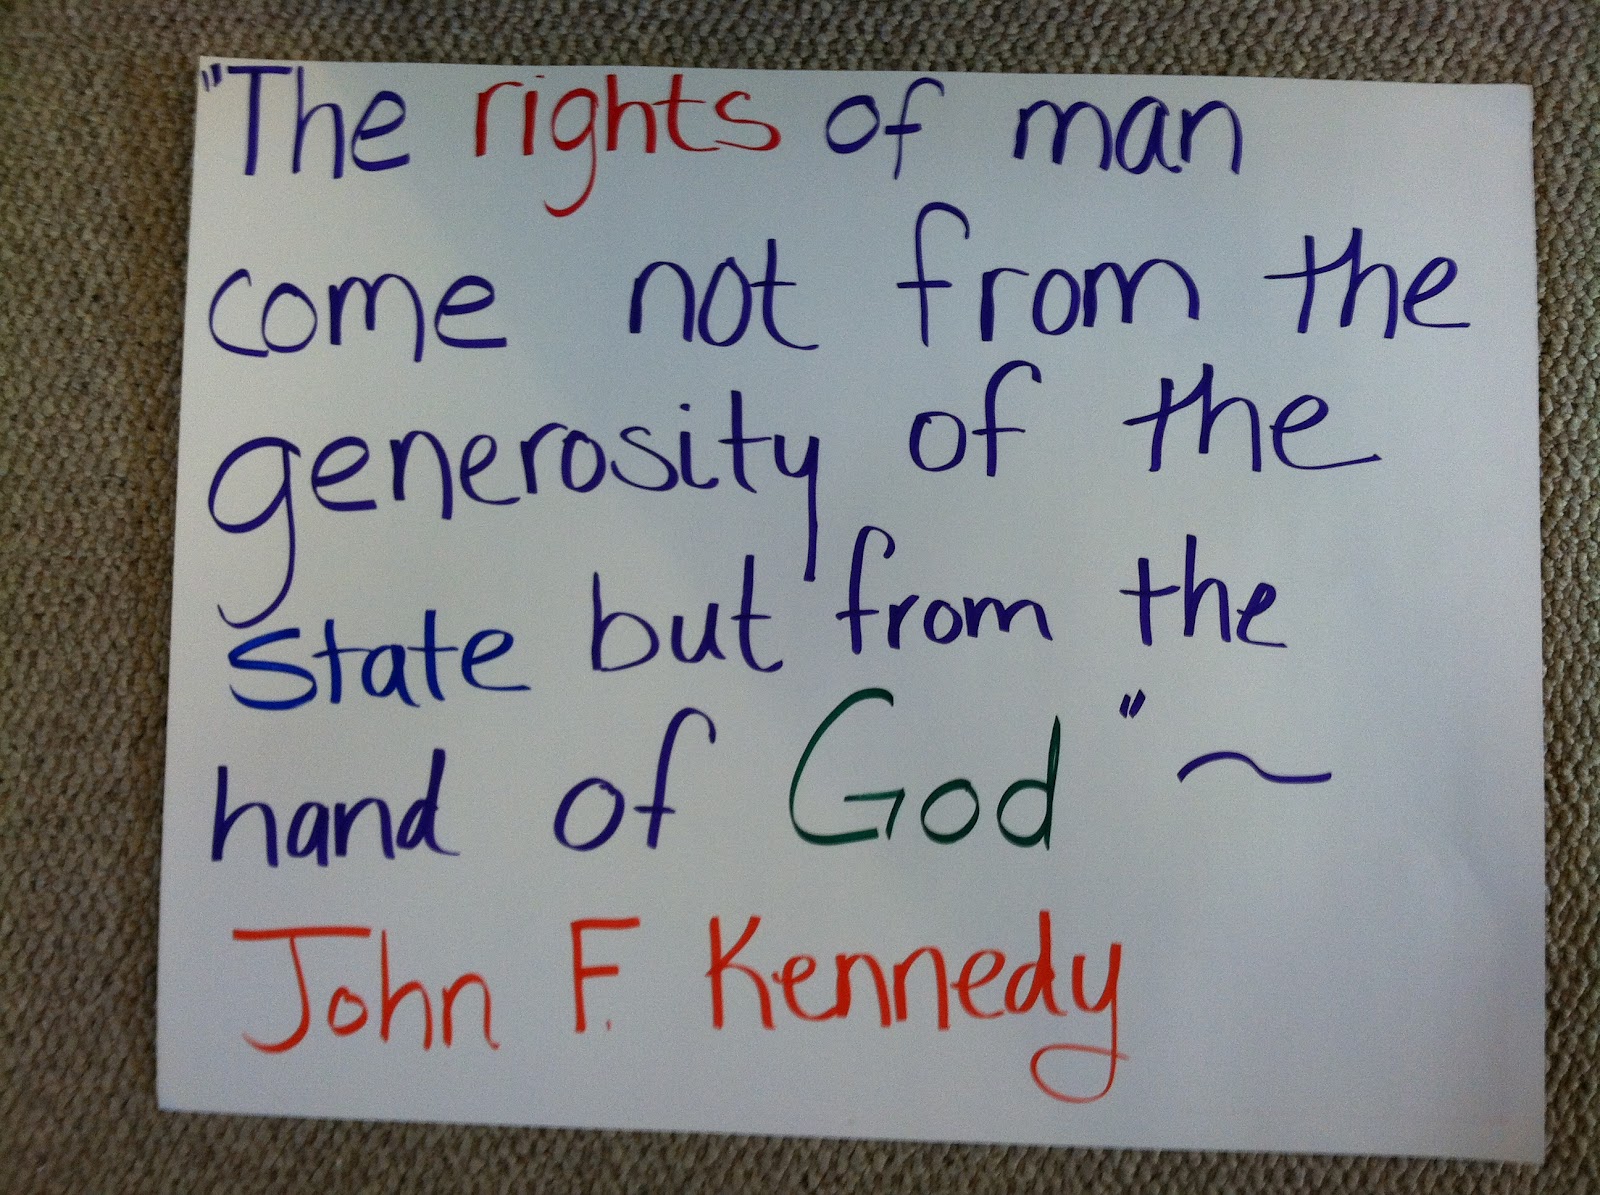 "The rights of man
come not from the
generosity of the
state but from the
hand of God" ~
John F. Kennedy